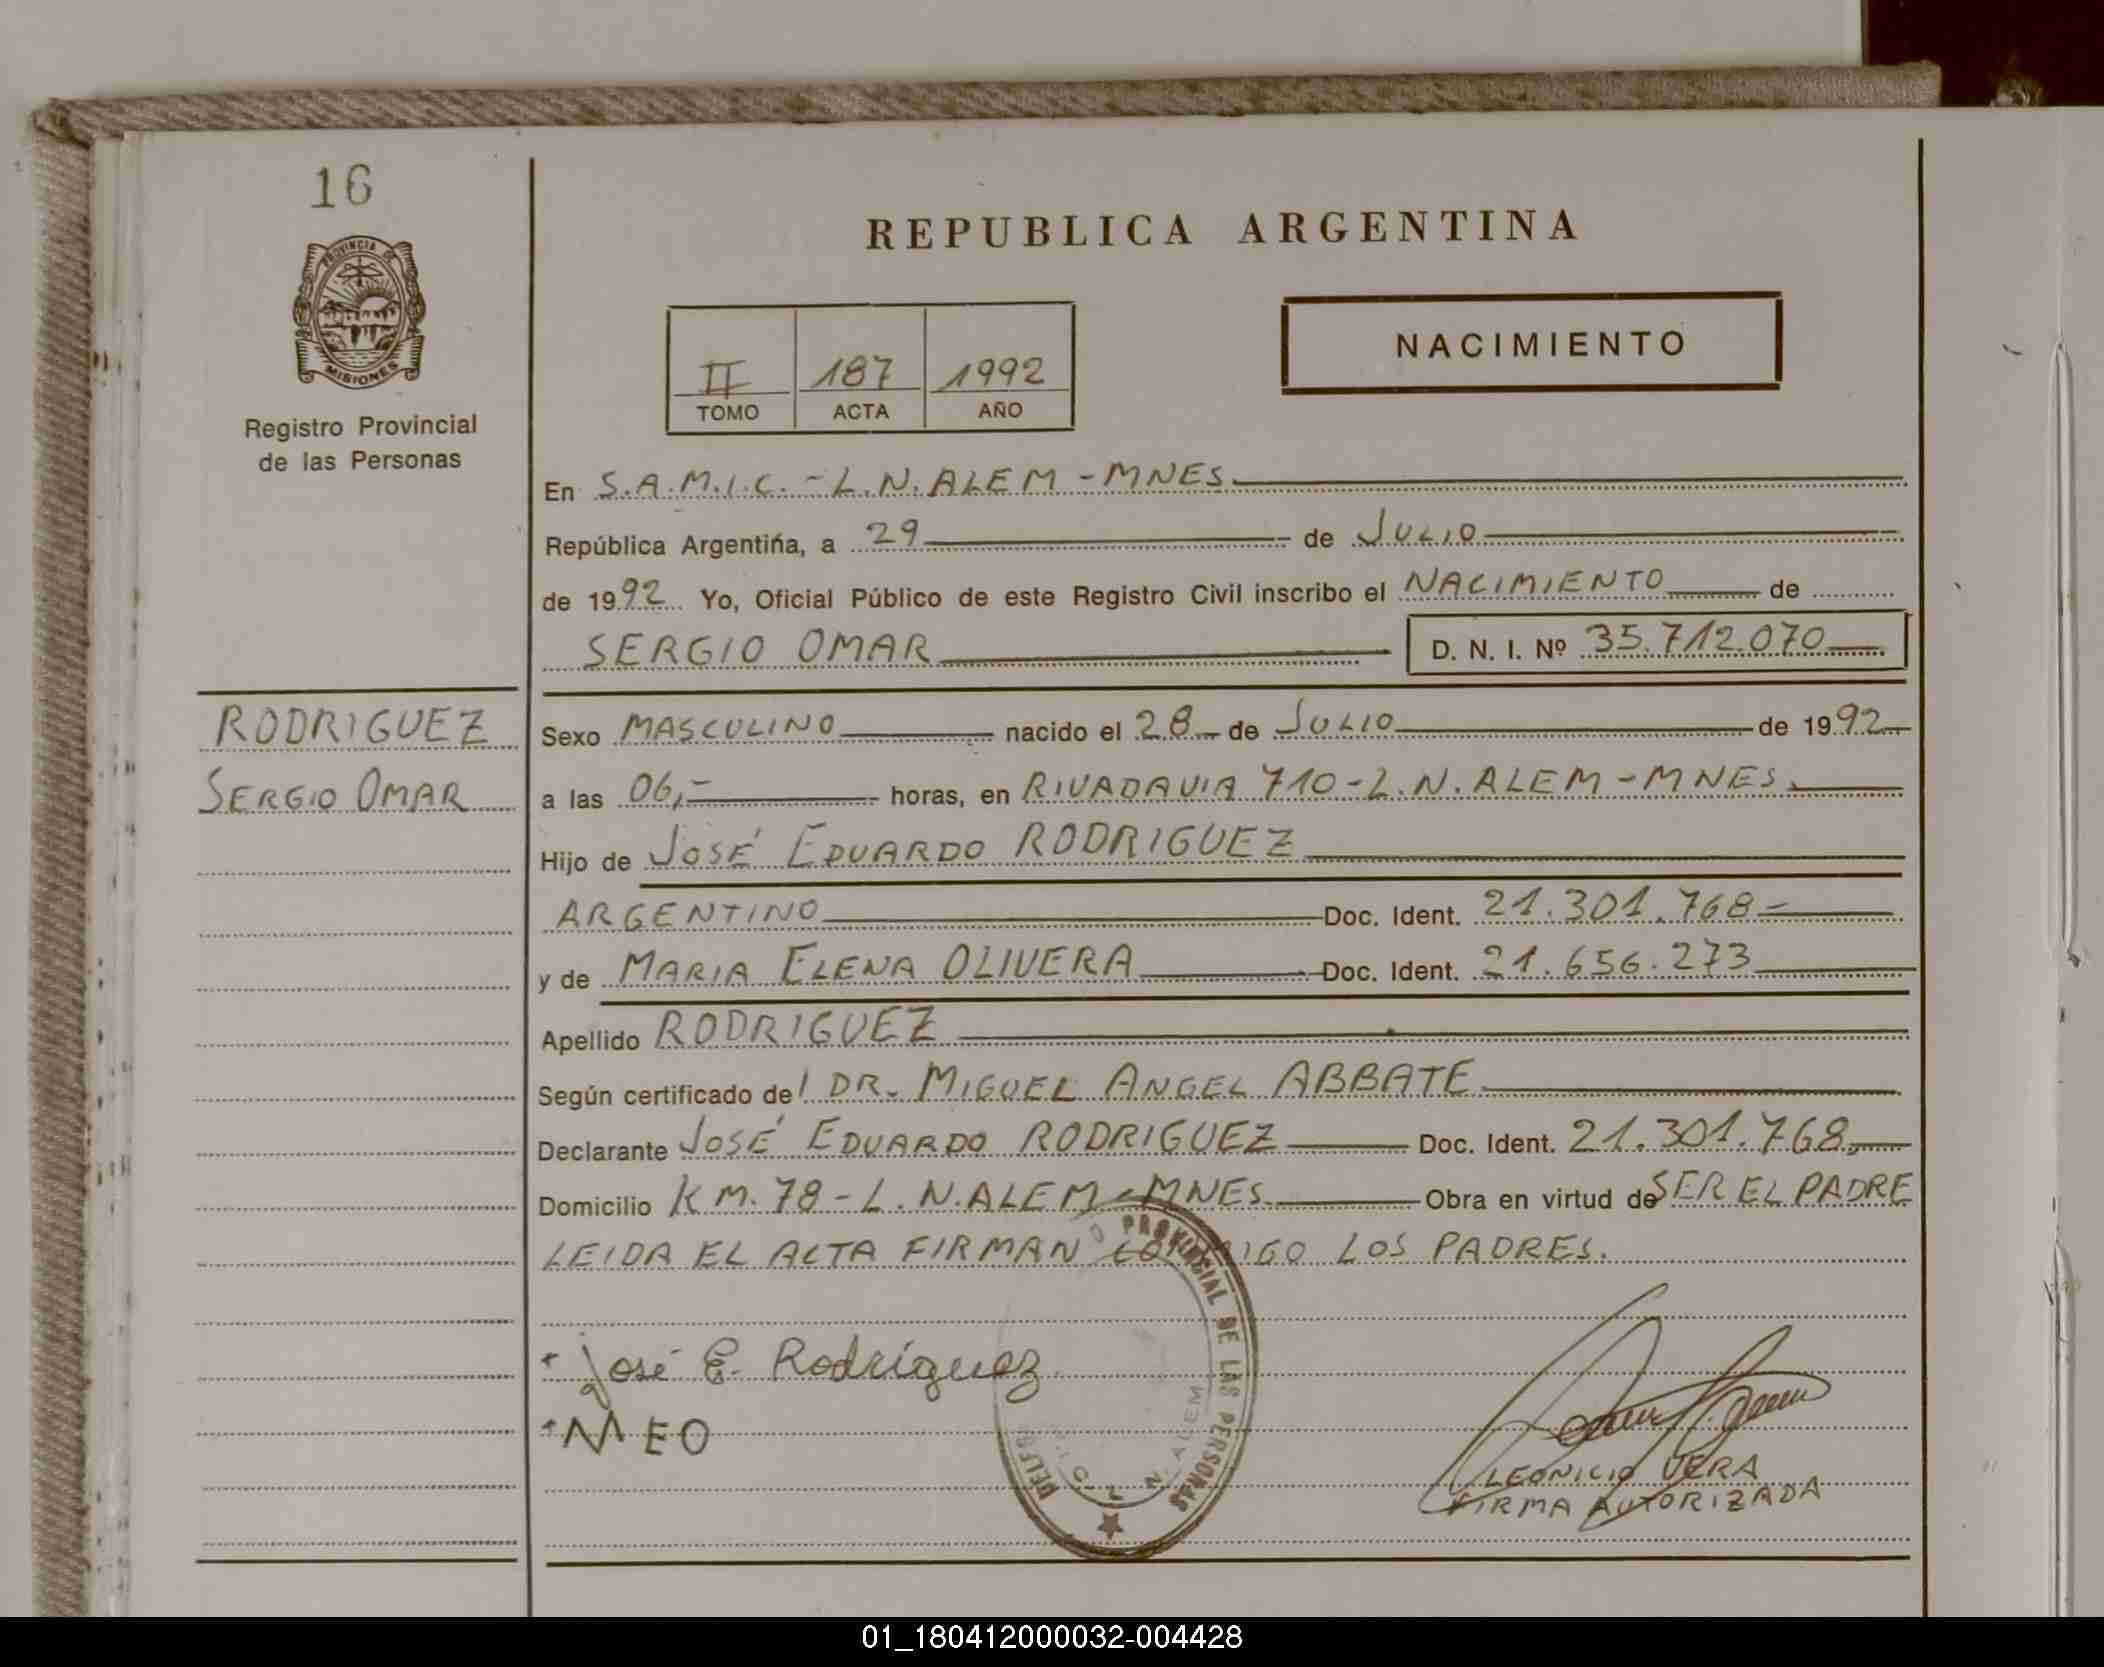 16
PROVINCIA DE
MISIONES
Registro Provincial
de las Personas
REPUBLICA ARGENTINA
II 187 1992
TOMO ACTA AÑO
NACIMIENTO
En S.A.M.I.C. - L.N. ALEM - MNES
República Argentina, a 29 de JULIO
de 1992 Yo, Oficial Público de este Registro Civil inscribo el NACIMIENTO de
SERGIO OMAR D. N. I. Nº 35.712.070
RODRIGUEZ
SERGIO OMAR
Sexo MASCULINO nacido el 28 de JULIO de 1992
a las 06,- horas, en RIVADAVIA 710 - L.N. ALEM - MNES.
Hijo de JOSÉ EDUARDO RODRIGUEZ
ARGENTINO Doc. Ident. 21.301.768-
y de MARIA ELENA OLIVERA Doc. Ident. 21.656.273
Apellido RODRIGUEZ
Según certificado del DR. MIGUEL ANGEL ABBATE
Declarante JOSÉ EDUARDO RODRIGUEZ Doc. Ident. 21.301.768,
Domicilio KM. 78 - L. N. ALEM - MNES Obra en virtud de SER EL PADRE
LEIDA EL ACTA FIRMAN CONMIGO LOS PADRES.
José E. Rodríguez
MEO
PROVINCIAL DE LAS PERSONAS
L. N. ALEM
LEONICIO VERA
FIRMA AUTORIZADA
01_180412000032-004428